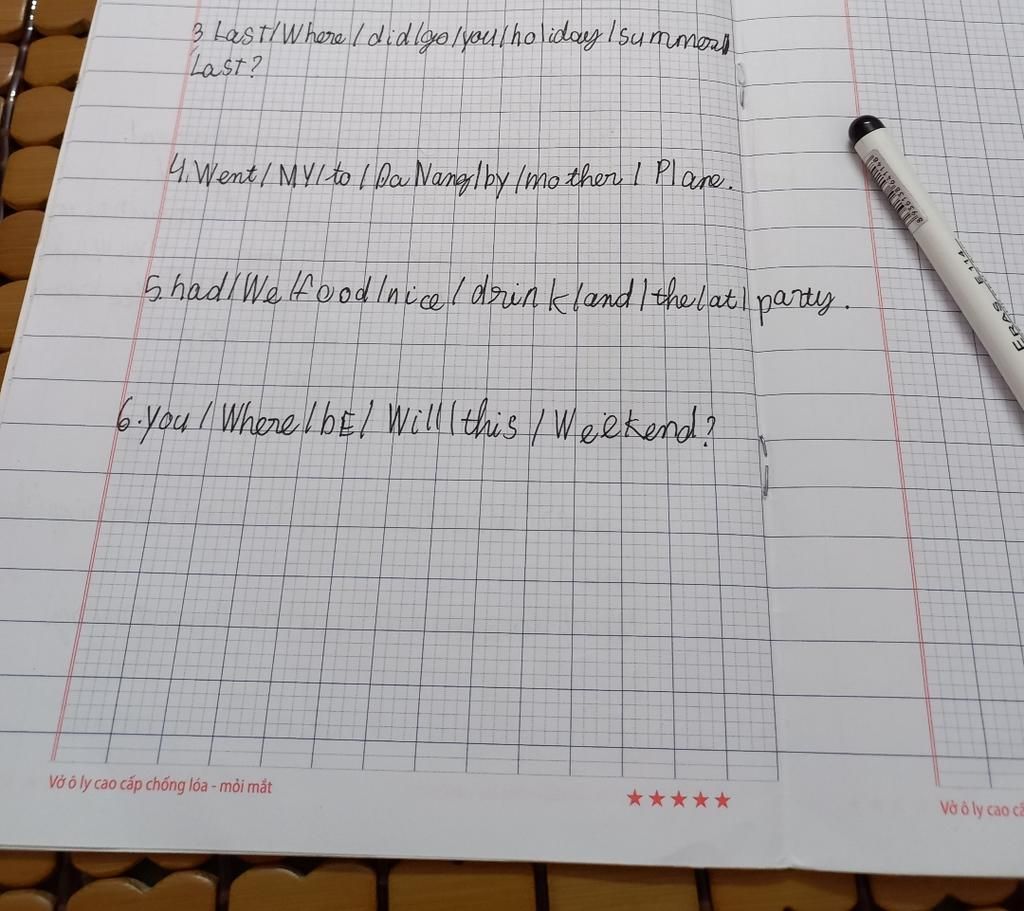 3 Last/Where/did/go/you/holiday/summer
Last?
4. Went/MY/to/Da Nang/by/mother/Plane.
5. had/We/food/nice/drink/and/the/at/party.
6. you/Where/bE/Will/this/Weekend?
Vở ô ly cao cấp chống lóa - mỏi mắt
★★★★★
Vở ô ly cao
ERAS